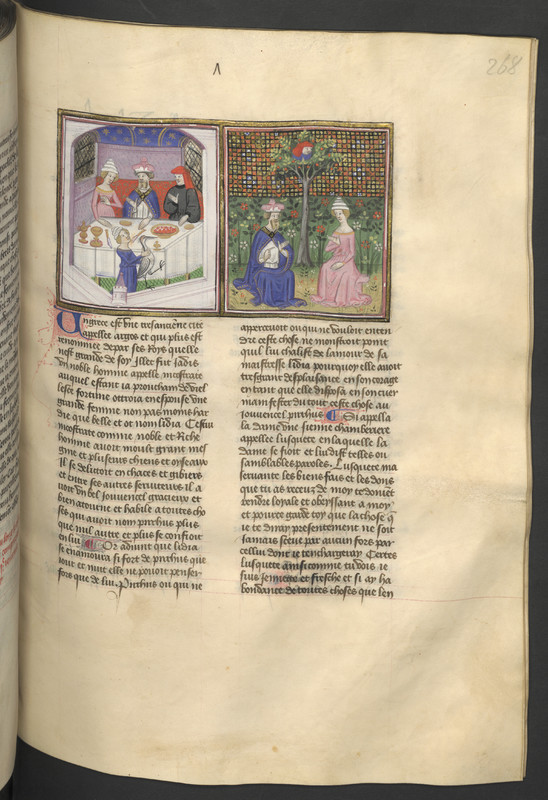 268
En grece est vne tresanciene cite
appellee argos et qui plus est
renommee de par ses Roys quelle
nest grande de soy Illec fut Jadis
vn noble homme appelle nicostrate
auquel estant ia prouchain de viel
lesse fortune ottroia en espouse vne
grande femme non pas moins har
die que belle et ot nom lidia Cestui
nicostrate comme noble et Riche
homme auoit moult grant mes
gnie et plusieurs chiens et oyseaux
Il se delitoit en chaces et gibiers
et entre ses autres seruiteurs il a
uoit vn bel Jouuencel gracieux et
bien atourne et habile a toutes cho
ses qui auoit nom pirrhus plus
que nul autre et plus se confioit
en lui Or aduint que lidia
se enamoura si fort de pirrhus que
iour et nuit elle ne pouoit penser
fors que de lui Pirrhus ou qui ne
apperceuoit ou qui ne vouloit enten
dre ceste chose ne monstroit point
quil lui chalist de lamour de sa
maistresse lidia pourquoy elle auoit
tresgrant desplaisance en son corage
en tant que elle disposa en son cuer
manifester du tout ceste chose au
Jouuencel pirrhus Si appella
la dame vne sienne chamberiere
appellee lusquete en laquelle la
dame se fioit et lui dist telles ou
samblables paroles Lusquete ma
seruante les bien fais et les dons
que tu as receuz de moy te doiuet
rendre loyale et obeyssant a moy
et pource garde toy que la chose que
ie te diray presentement ne soit
Jamais sceue par aucun fors par
cellui dont ie tenchargeray Certes
lusquete ainsi comme tu vois ie
suis Jennette et fresche et si ay ha
bondance de toutes choses que len